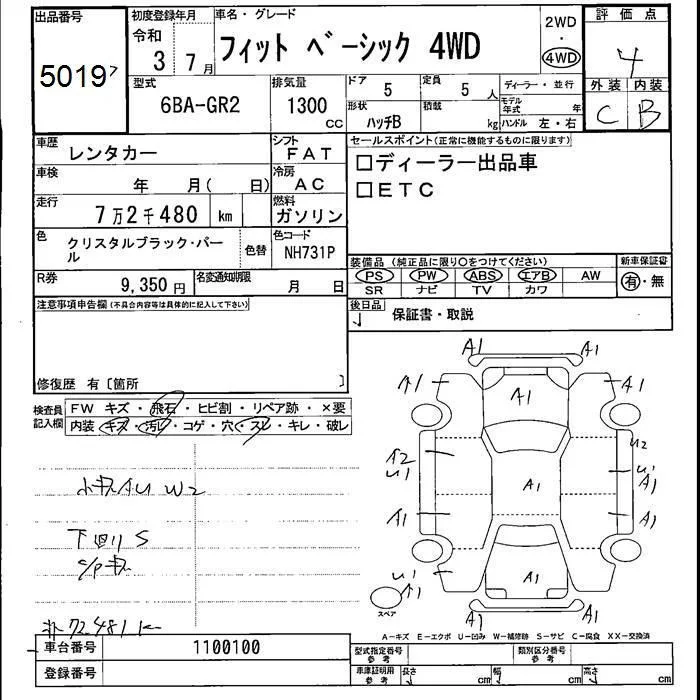 出品番号 初度登録年月 車名・グレード 2WD 評価点
5019 7 令和 3 7月 フィット ベーシック 4WD ・ 4WD 4
型式 排気量 ドア 定員 ディーラー・並行 外装 内装
6BA-GR2 1300 CC 5 5人 モデル年式 年 C B
形状 積載
ハッチB kg ハンドル 左・右
車歴 レンタカー シフト FAT セールスポイント(正常に機能するものに限ります)
車検 年 月( 日) 冷房 AC □ディーラー出品車
走行 7万2千480 km 燃料 ガソリン □ETC
色 クリスタルブラック・パール 色替 色コード NH731P
装備品(純正品に限り○をつけてください) 新車保証書
R券 9,350円 名変通知期限 月 日 PS PW ABS エアB AW 有・無
SR ナビ TV カワ
注意事項申告欄(不具合内容等は具体的に記入して下さい) 後日品 保証書・取説
修復歴 有〔箇所 〕
検査員記入欄 FW キズ・飛石・ヒビ割・リペア跡・×要
内装・キズ・汚レ・コゲ・穴・スレ・キレ・破レ
A1 A1
A1 A1 A1
A2 U2
U1 A1 U1
A1
A1 A1
U1 A1 A1
スペア
A1 A1
小キズAU W2
下回りS
72481K
A-キズ E-エクボ U-凹み W-補修跡 S-サビ C-腐食 XX-交換済
車台番号 1100100 型式指定番号 参考 類別区分番号 参考
登録番号 車庫証明用 参考 長さ cm 幅 cm 高さ cm